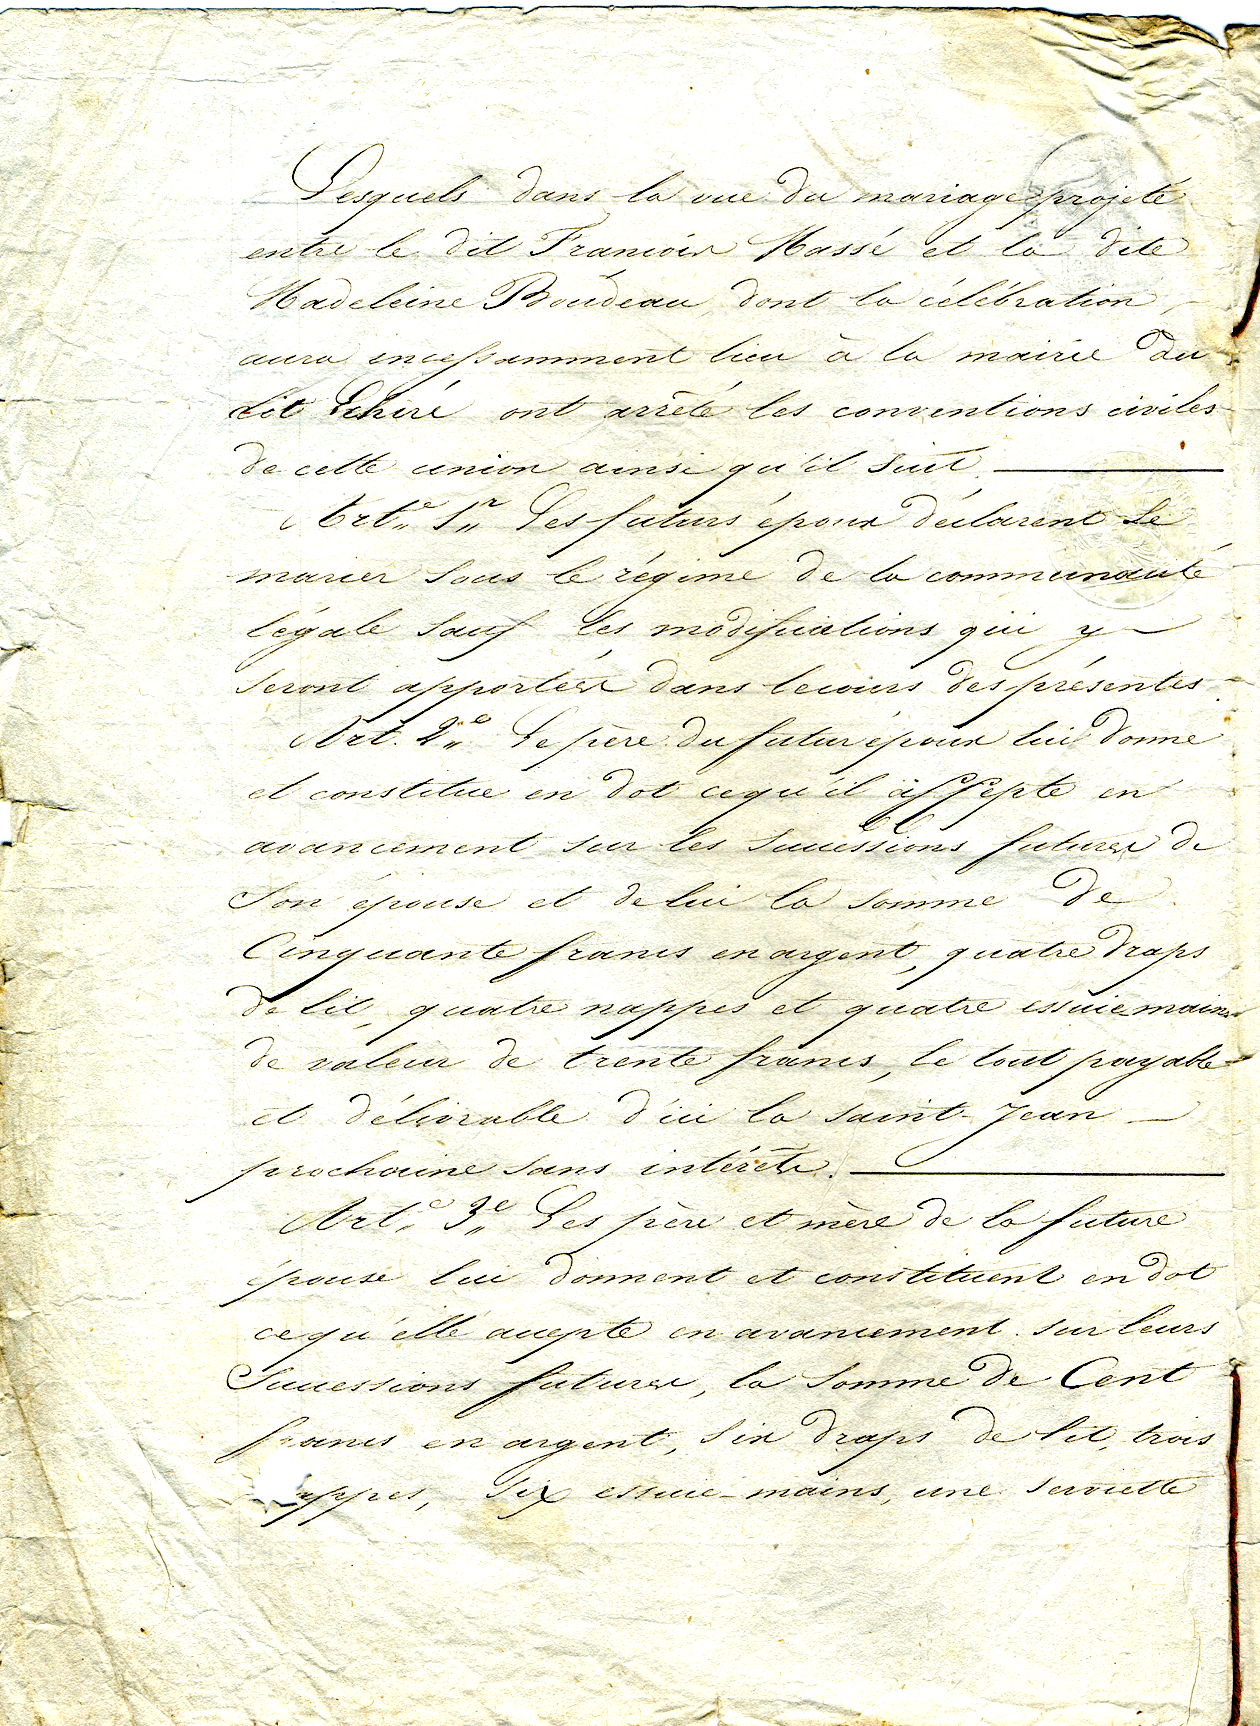 Lesquels dans la vue du mariage projeté
entre le dit Francois Massé et la dite
Madeleine Boudeau, dont la célébration
aura incessamment lieu à la mairie du
dit Echiré ont arrêté les conventions civiles
de cette union ainsi qu'il suit.
Art.e 1.r Les futurs époux déclarent se
marier sous le régime de la communauté
légale sauf les modifications qui y
seront apportées dans le cours des présentes.
Art. 2.e Le père du futur époux lui donne
et constitue en dot ce qu'il accepte en
avancement sur les successions futures de
son épouse et de lui la somme de
Cinquante francs en argent, quatre draps
de lit, quatre nappes et quatre essuie mains
de valeur de trente francs, le tout payable
et délivrable d'ici la saint-Jean
prochaine sans intérêts.
Art.e 3.e Les père et mère de la future
épouse lui donnent et constituent en dot
ce qu'elle accepte en avancement sur leurs
successions futures, la somme de Cent
francs en argent, six draps de lit, trois
nappes, six essuie-mains, une serviette